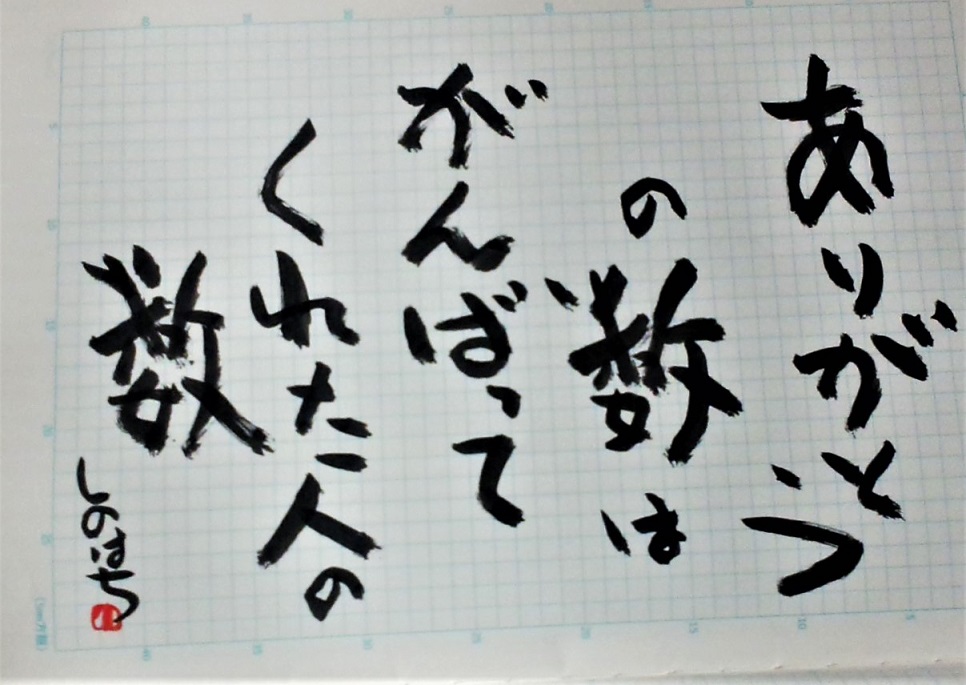 ありがとう
の数は
がんばって
くれた人の
数
しのはち